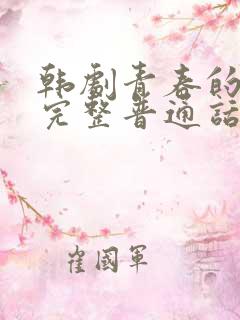 韩剧青春的
完整普通话
崔國軍